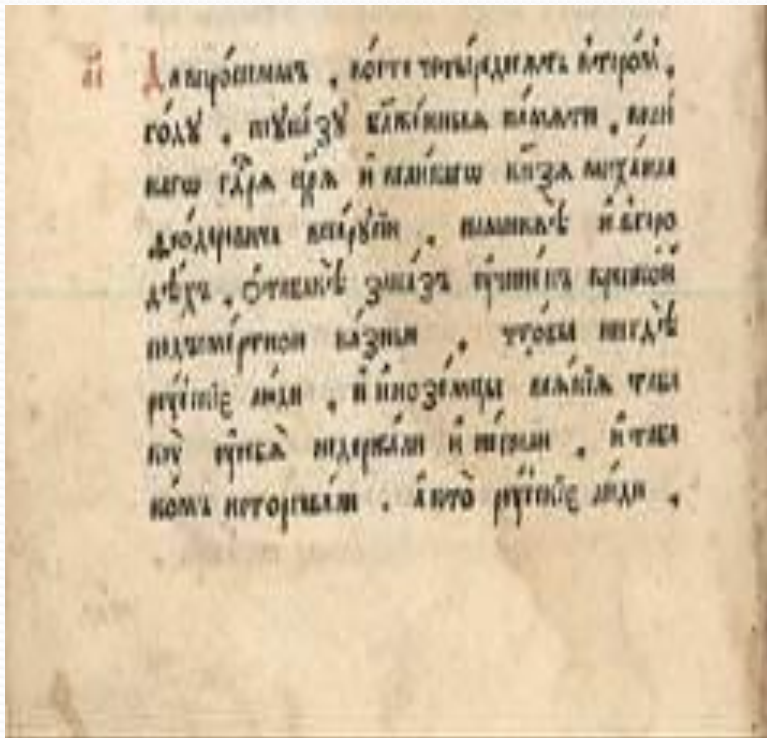 аі Да впро́шломъ , во сто четы́редесѧтъ второ́мъ ,
году̀ , по ᲂу҆ка́зу бл҃же́нныѧ па́мѧти , вели́
кагѡ гдⷭ҇рѧ цр҃ѧ̀ и҆ вели́кагѡ кн҃зѧ михаи́ла
ѳео́дѡровича всеа̀ рꙋсі́и , на москвѣ̀ и҆ в горо
дѣ́хъ , ѡ҆ табакѣ̀ зака́зъ ᲂу҆чине́нъ крѣ́пкой
под сме́ртною ка́знью , что́бы нигдѣ̀
рꙋ́скіѐ лю́ди , и҆ и҆ноземцы всѧ́кіѧ таба
кꙋ̀ ᲂу҆ себѧ̀ не держа́ли и҆ не пи́ли , и҆ таба
ко́мъ не торгова́ли . а҆ кто̀ рꙋ́скіѐ лю́ди ,